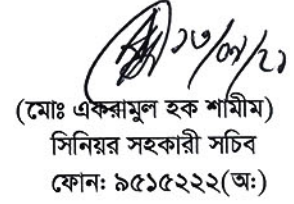 ১৩/০৭/২১
(মোঃ একরামুল হক শামীম)
সিনিয়র সহকারী সচিব
ফোনঃ ৯৫১৫২২২(অ:)